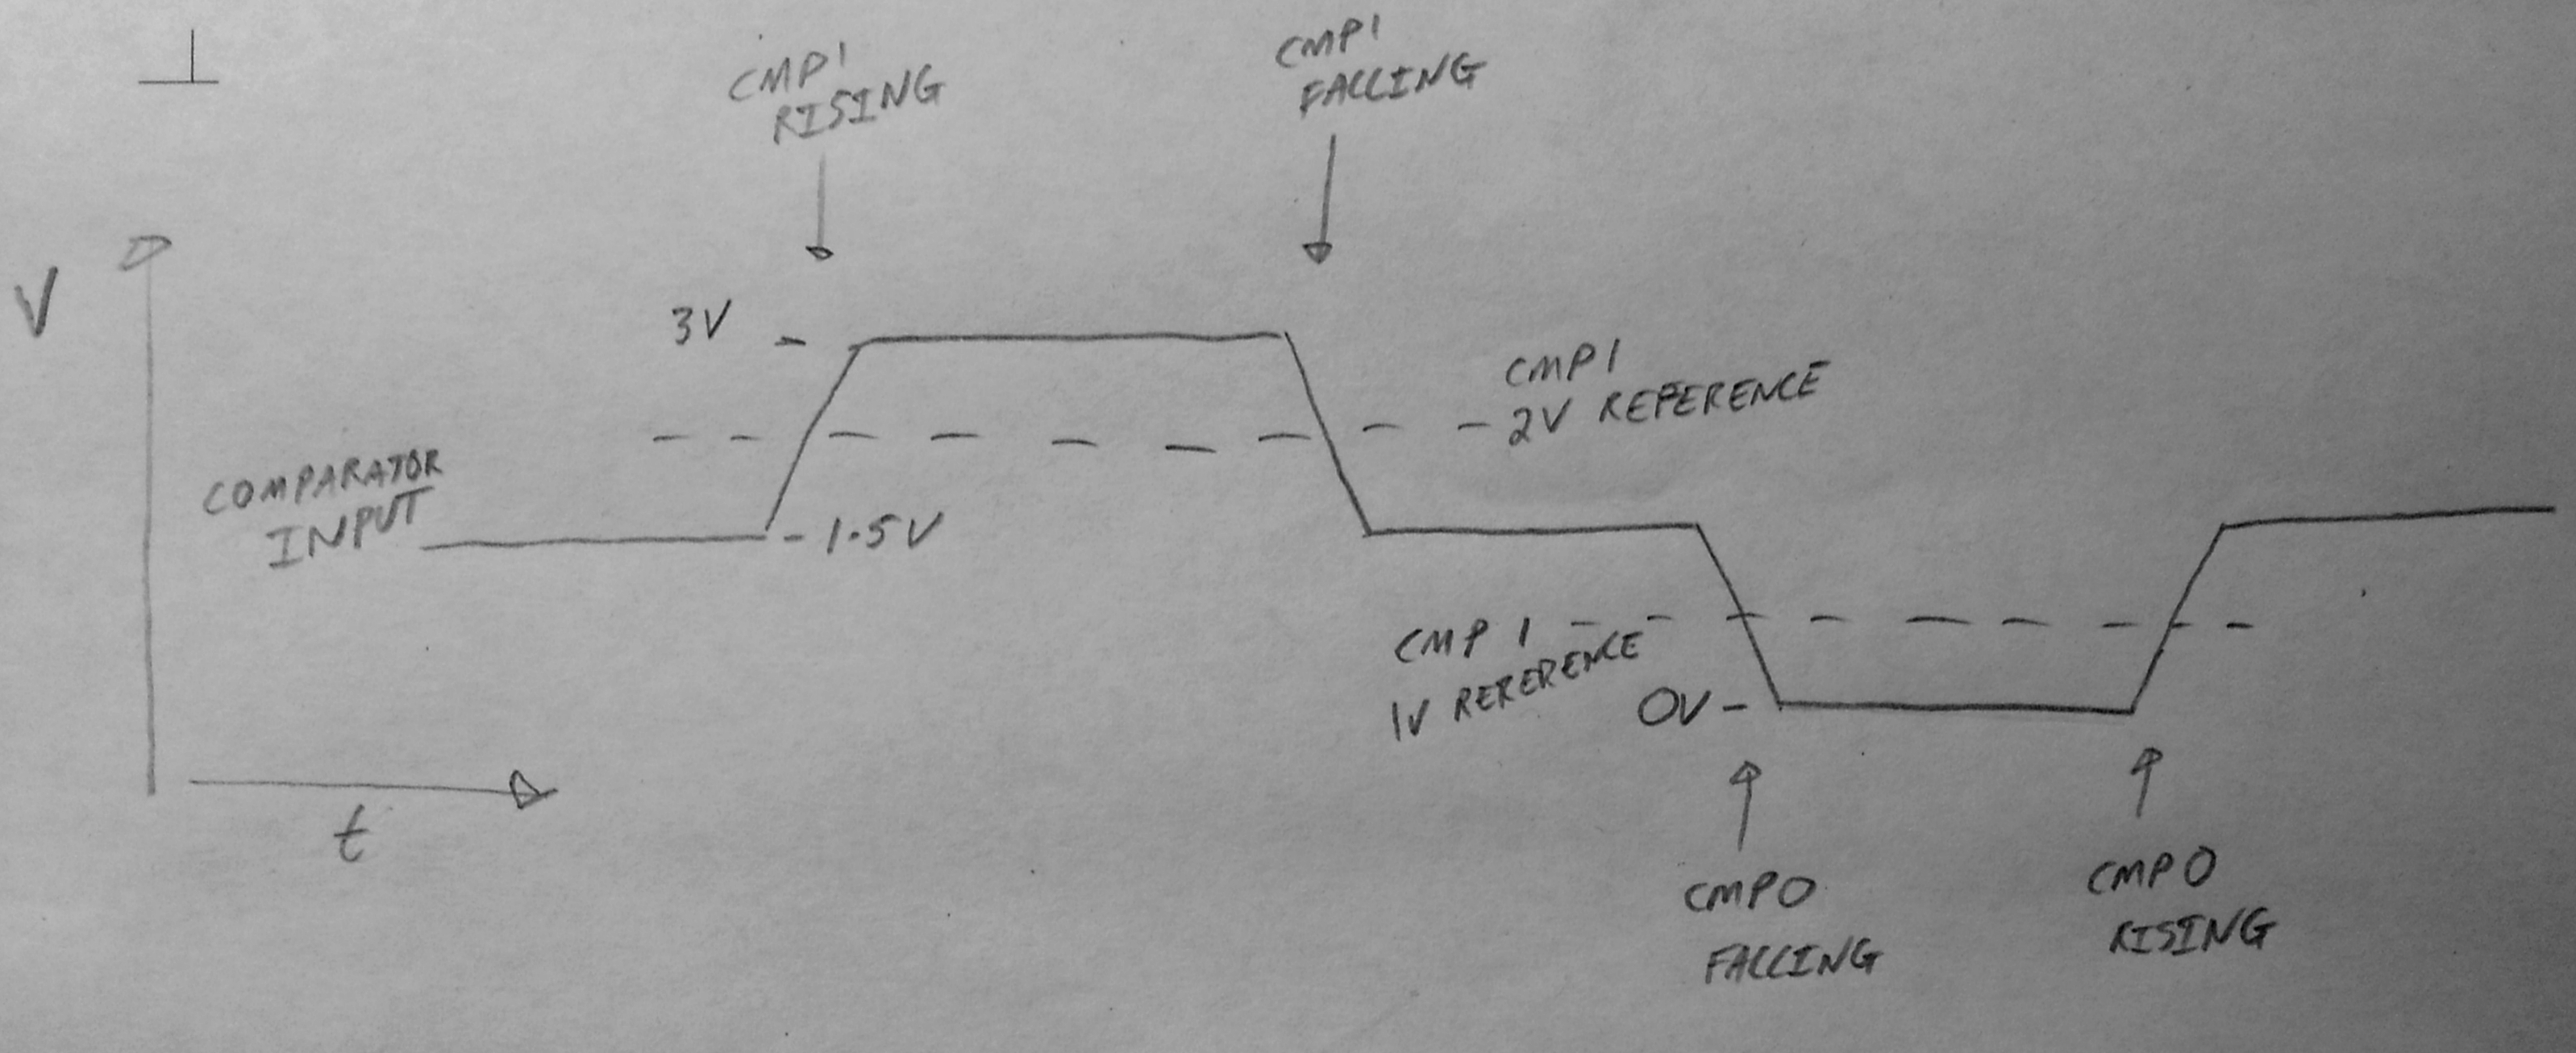 CMP1
RISING
CMP1
FALLING
V
3V
CMP1
2V REFERENCE
COMPARATOR
INPUT
1.5V
CMP 1
1V REFERENCE
0V
t
CMP0
FALLING
CMP0
RISING